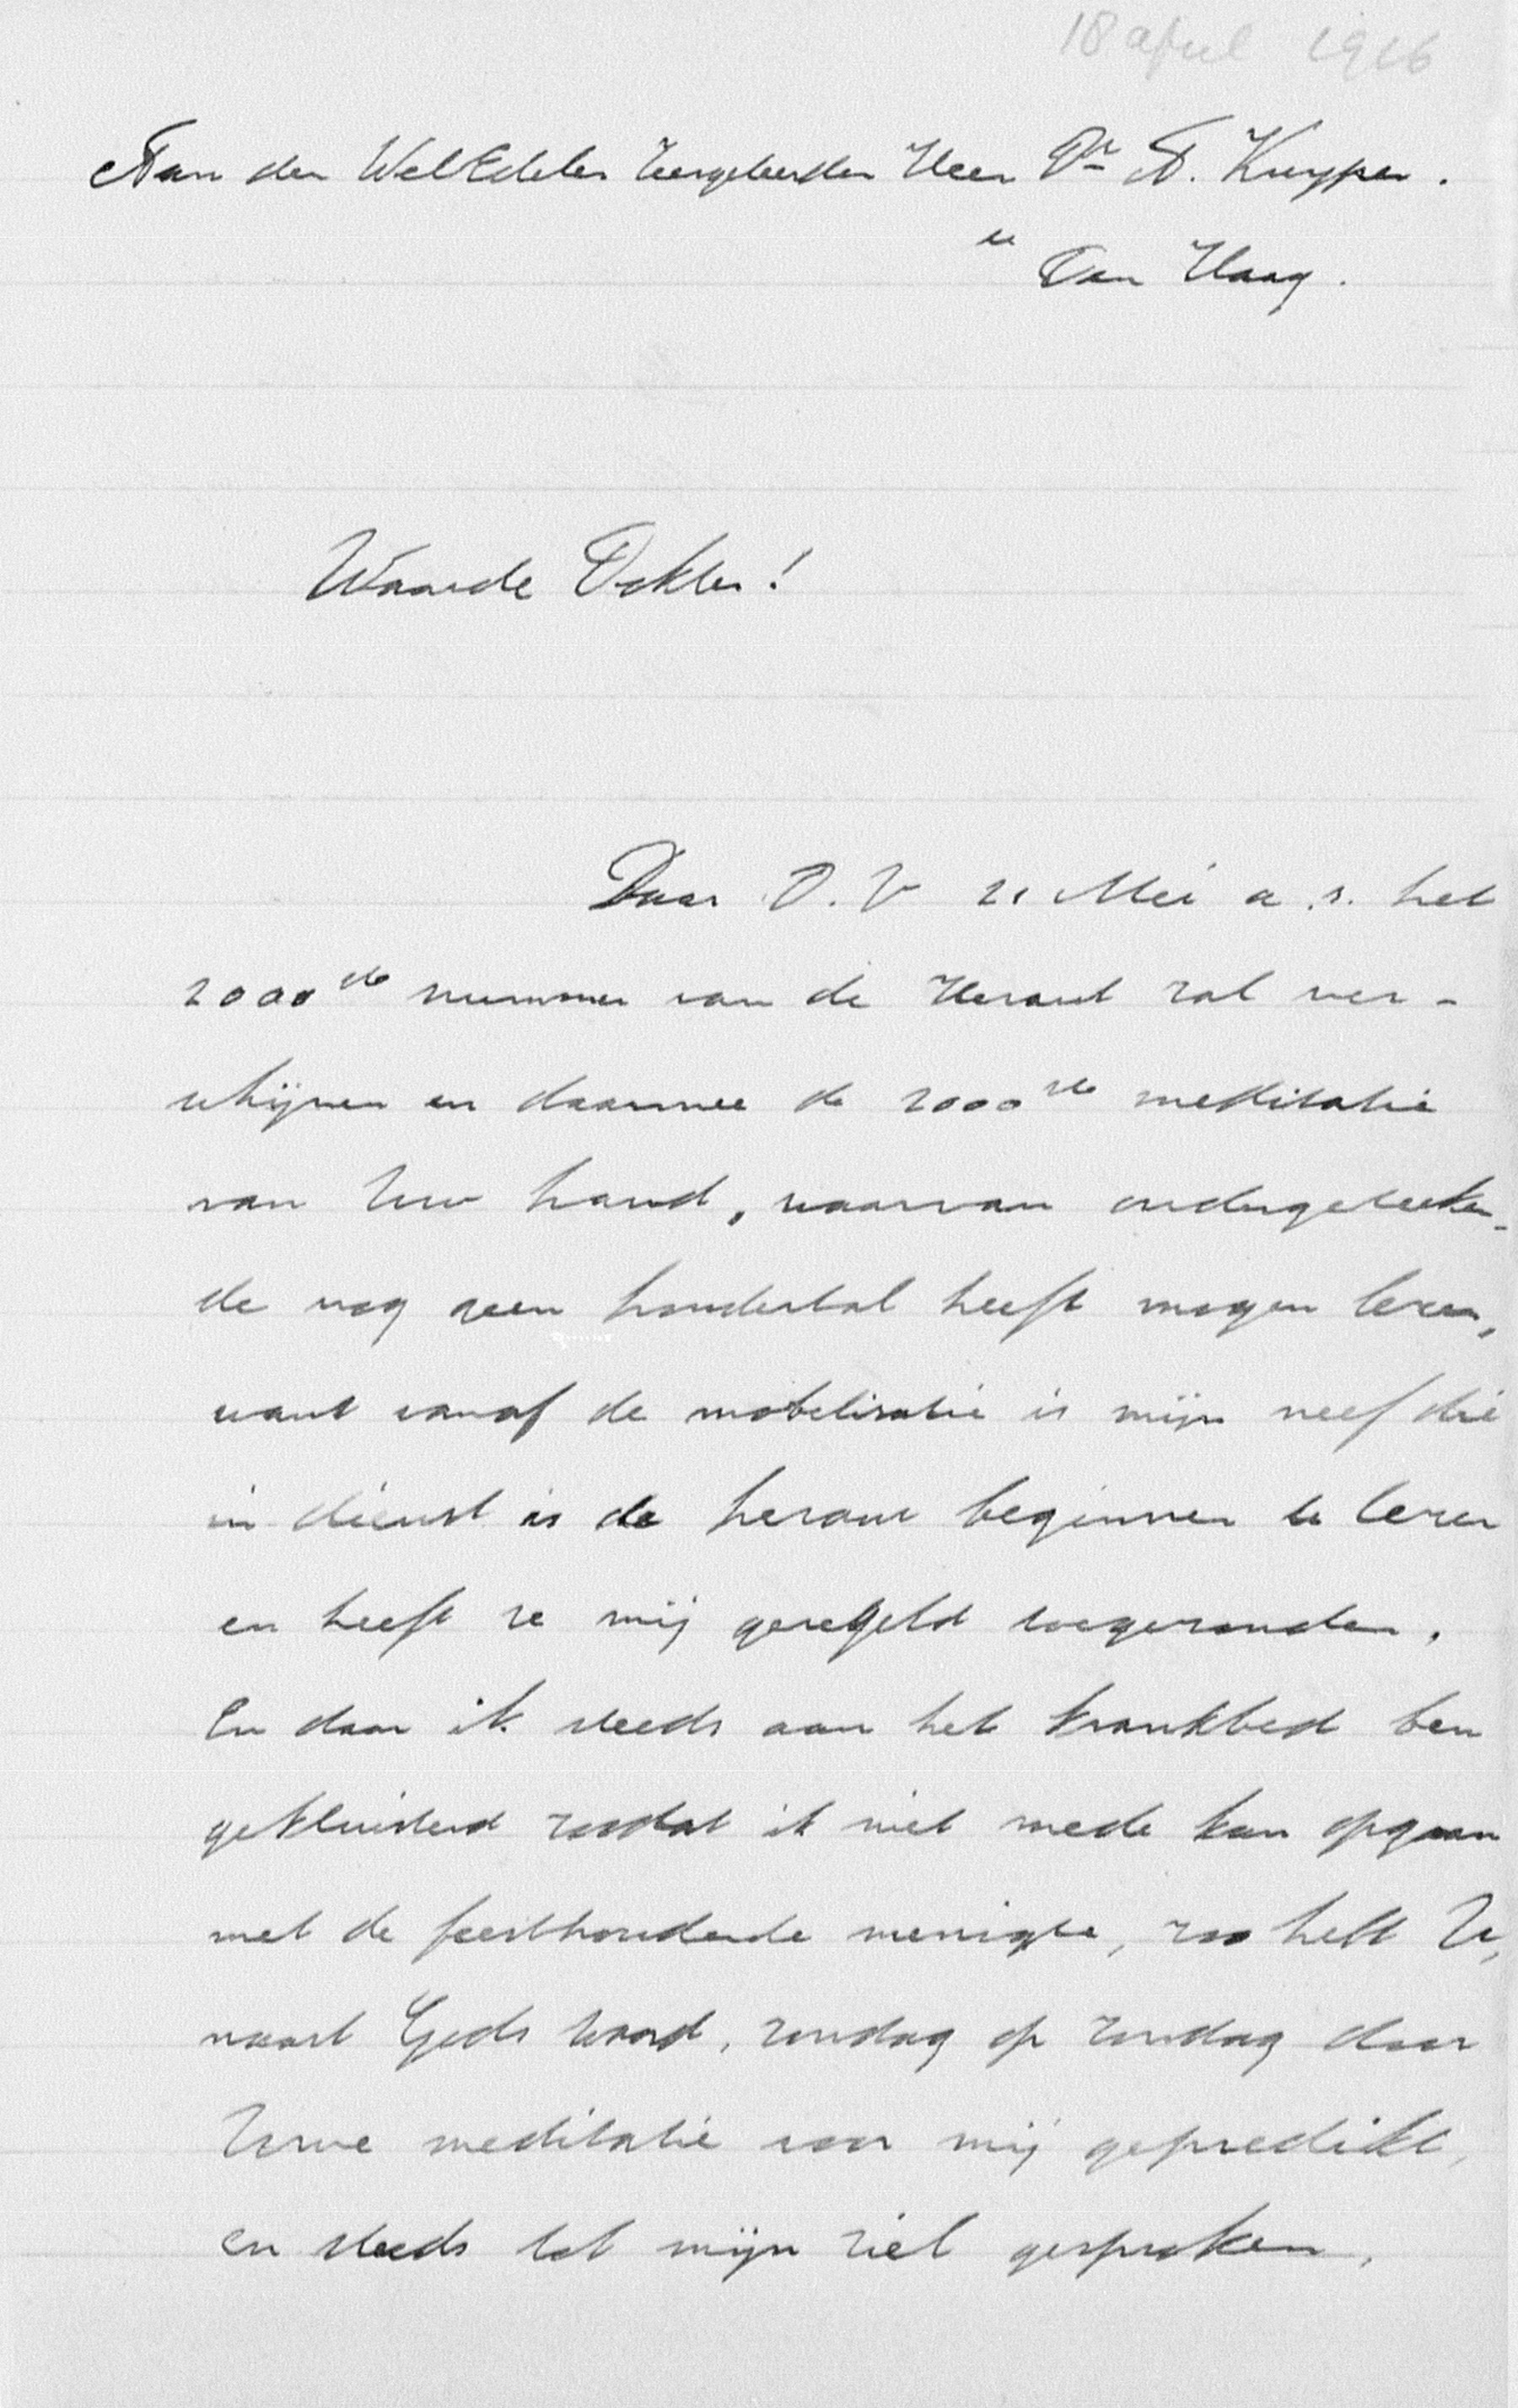 18 april 1916
Aan den WelEdelen Zeergeleerden Heer Dr A. Kuyper.
te Den Haag.
Waarde Dokter!
Daar D.V 21 Mei a.s. het
2000ste nummer van de Heraut zal ver-
schijnen en daarmee de 2000ste meditatie
van Uw hand, waarvan ondergeteeken-
de nog geen hondertal heeft mogen lezen,
want vanaf de mobelisatie is mijn neef die
in dienst is de heraut beginnen te lezen
en heeft ze mij geregeld toegezonden.
En daar ik steeds aan het krankbed ben
gekluisterd zoodat ik niet mede kan opgaan
met de feesthoudende menigte, zoo hebt U,
naast Gods woord, zondag op zondag door
Uwe meditatie voor mij gepredikt,
en steeds tot mijn ziel gesproken,